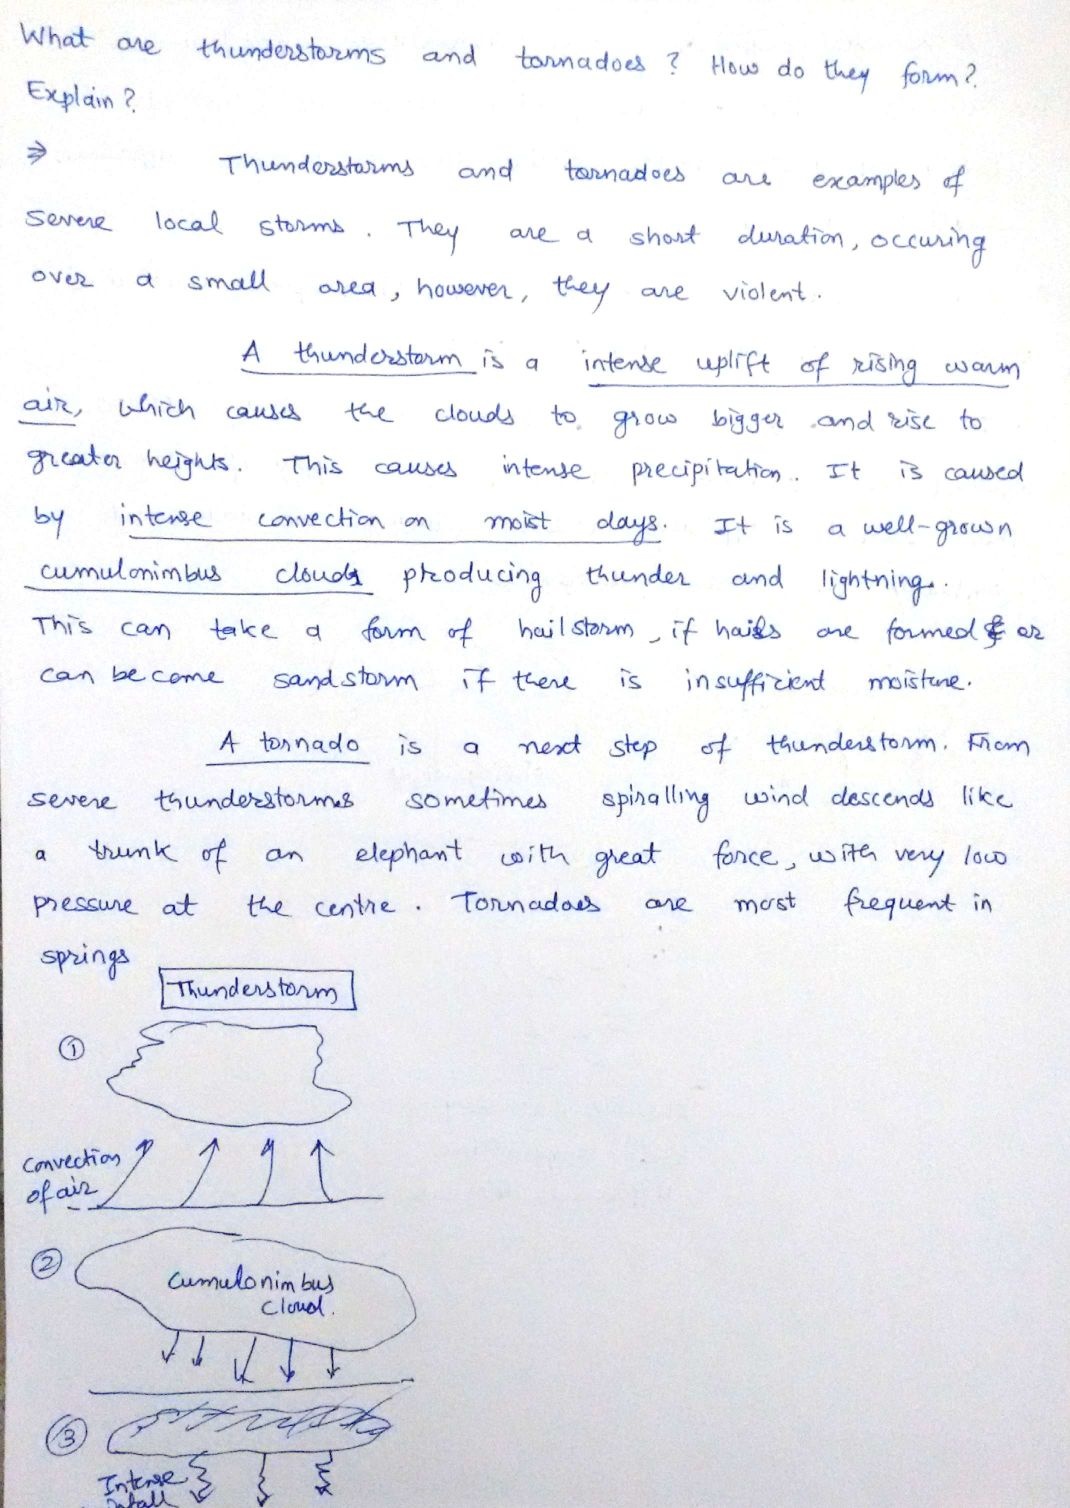 What are thunderstorms and tornadoes? How do they form?
Explain?
⇒ Thunderstorms and tornadoes are examples of
severe local storms. They are a short duration, occuring
over a small area, however, they are violent.
A thunderstorm is a intense uplift of rising warm
air, which causes the clouds to grow bigger and rise to
greater heights. This causes intense precipitation. It is caused
by intense convection on moist days. It is a well-grown
cumulonimbus clouds producing thunder and lightning.
This can take a form of hailstorm, if hails are formed or
can become sandstorm if there is insufficient moisture.
A tornado is a next step of thunderstorm. From
severe thunderstorms sometimes spiralling wind descends like
a trunk of an elephant with great force, with very low
pressure at the centre. Tornadoes are most frequent in
springs
Thunderstorm
①
Convection
of air
②
Cumulonimbus
Cloud.
③
Intense